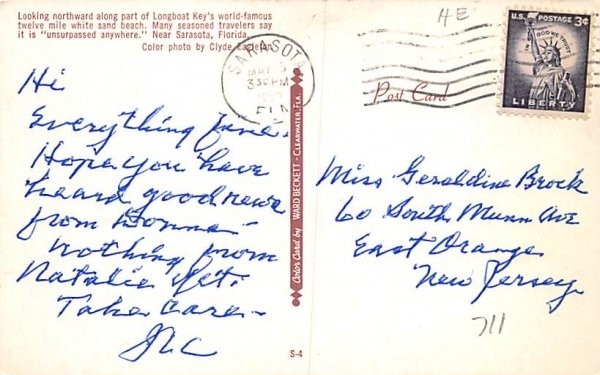 Looking northward along part of Longboat Key's world-famous
twelve mile white sand beach. Many seasoned travelers say
it is "unsurpassed anywhere." Near Sarasota, Florida.
Color photo by Clyde
Hi
Everything fine.
Hope you have
heard good news
from Donna -
Nothing from
Natalie yet.
Take Care -
Color Card by WARD BECKETT - CLEARWATER, FLA.
S-4
HE
SARASOTA
330 PM
FLA
U.S. POSTAGE 3¢
IN GOD WE TRUST
LIBERTY
Post Card
Miss Geraldine Brock
60 South Munn Ave
East Orange
New Jersey
711